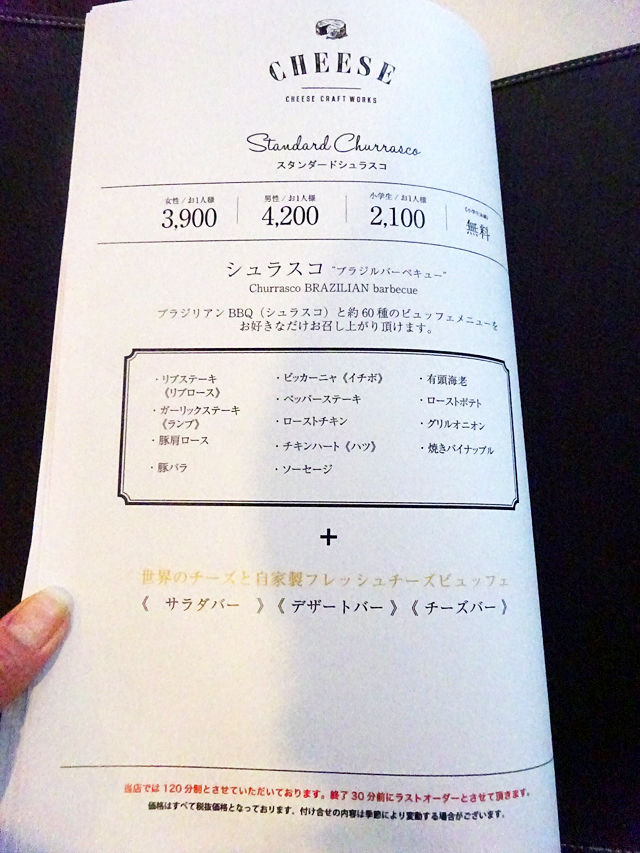 CHEESE
CHEESE CRAFT WORKS
Standard Churrasco
スタンダードシュラスコ
女性／お1人様 男性／お1人様 小学生／お1人様
3,900 4,200 2,100 無料
シュラスコ “ブラジルバーベキュー”
Churrasco BRAZILIAN barbecue
ブラジリアンBBQ（シュラスコ）と約60種のビュッフェメニューを
お好きなだけお召し上がり頂けます。
・リブステーキ
《リブロース》
・ガーリックステーキ
《ランプ》
・豚肩ロース
・豚バラ
・ピッカーニャ《イチボ》
・ペッパーステーキ
・ローストチキン
・チキンハート《ハツ》
・ソーセージ
・有頭海老
・ローストポテト
・グリルオニオン
・焼きパイナップル
+
世界のチーズと自家製フレッシュチーズビュッフェ
《 サラダバー 》《 デザートバー 》《 チーズバー 》
当店では120分制とさせていただいております。終了30分前にラストオーダーとさせて頂きます。
価格はすべて税抜価格となっております。付け合せの内容は季節により変動する場合がございます。